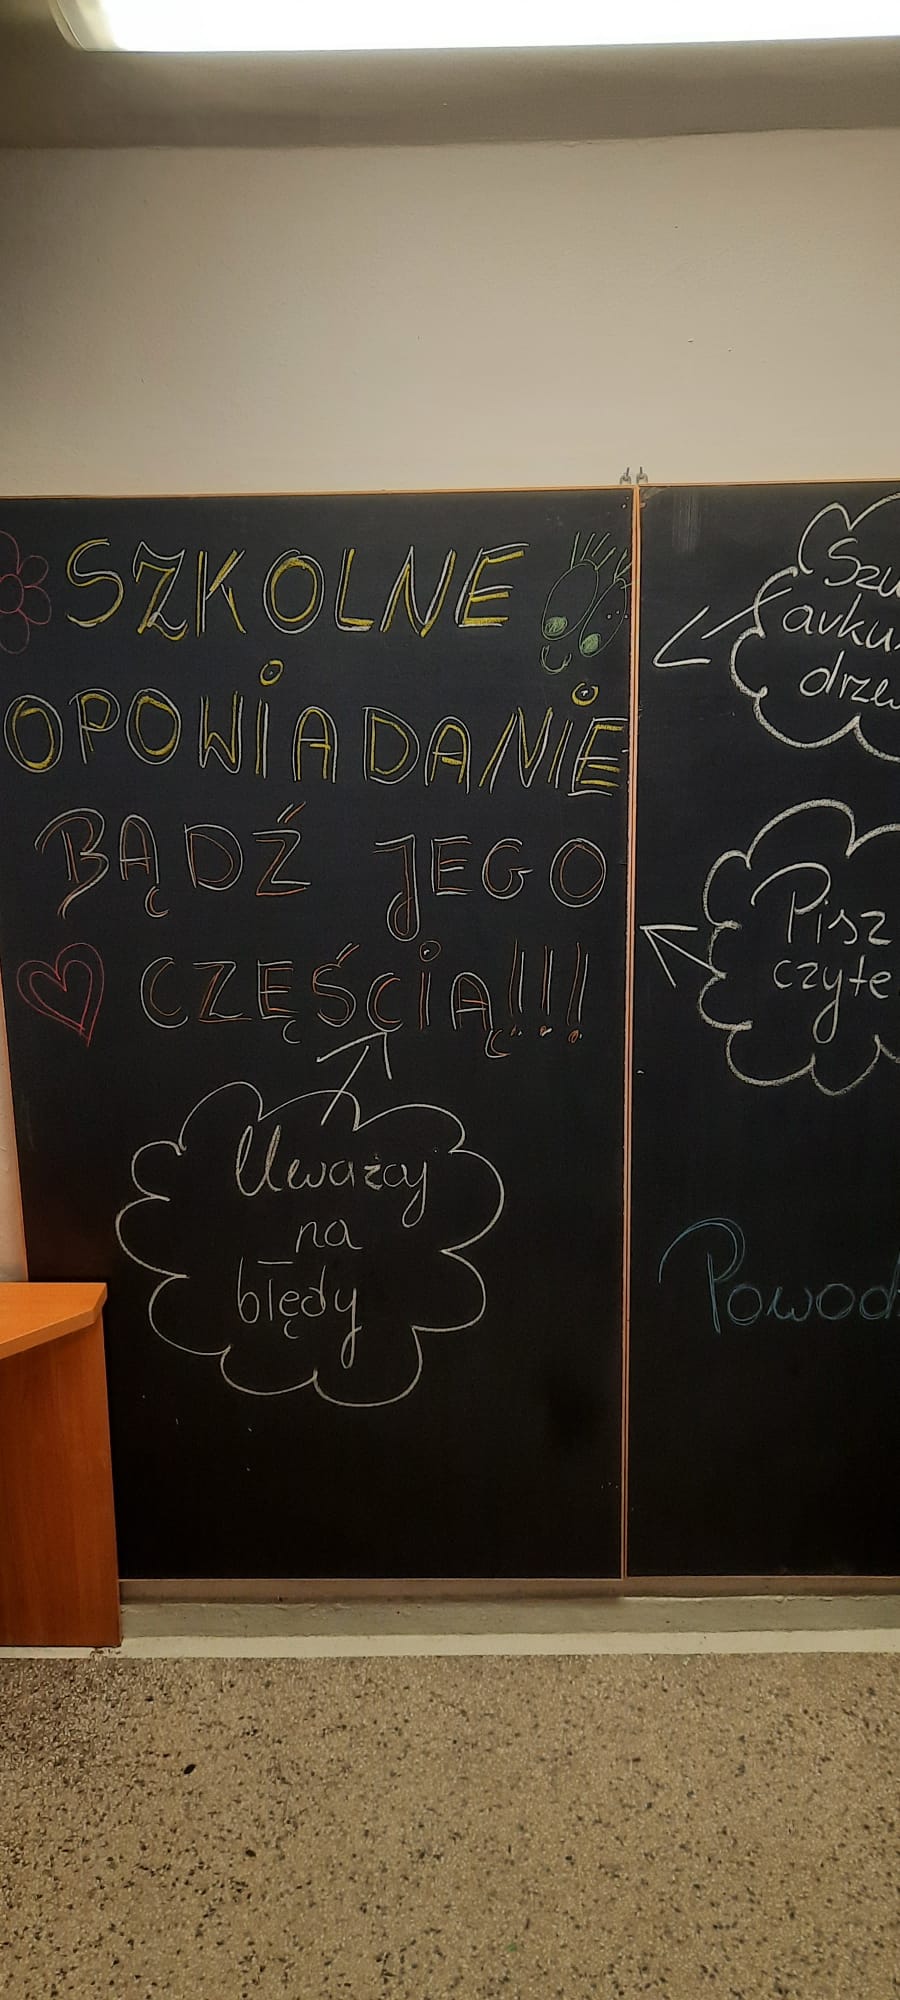 SZKOLNE
OPOWIADANIE
BĄDŹ JEGO
CZĘŚCIĄ!!!
Uważaj
na
błędy
Szu
arkus
drzew
Pisz
czyte
Powodz